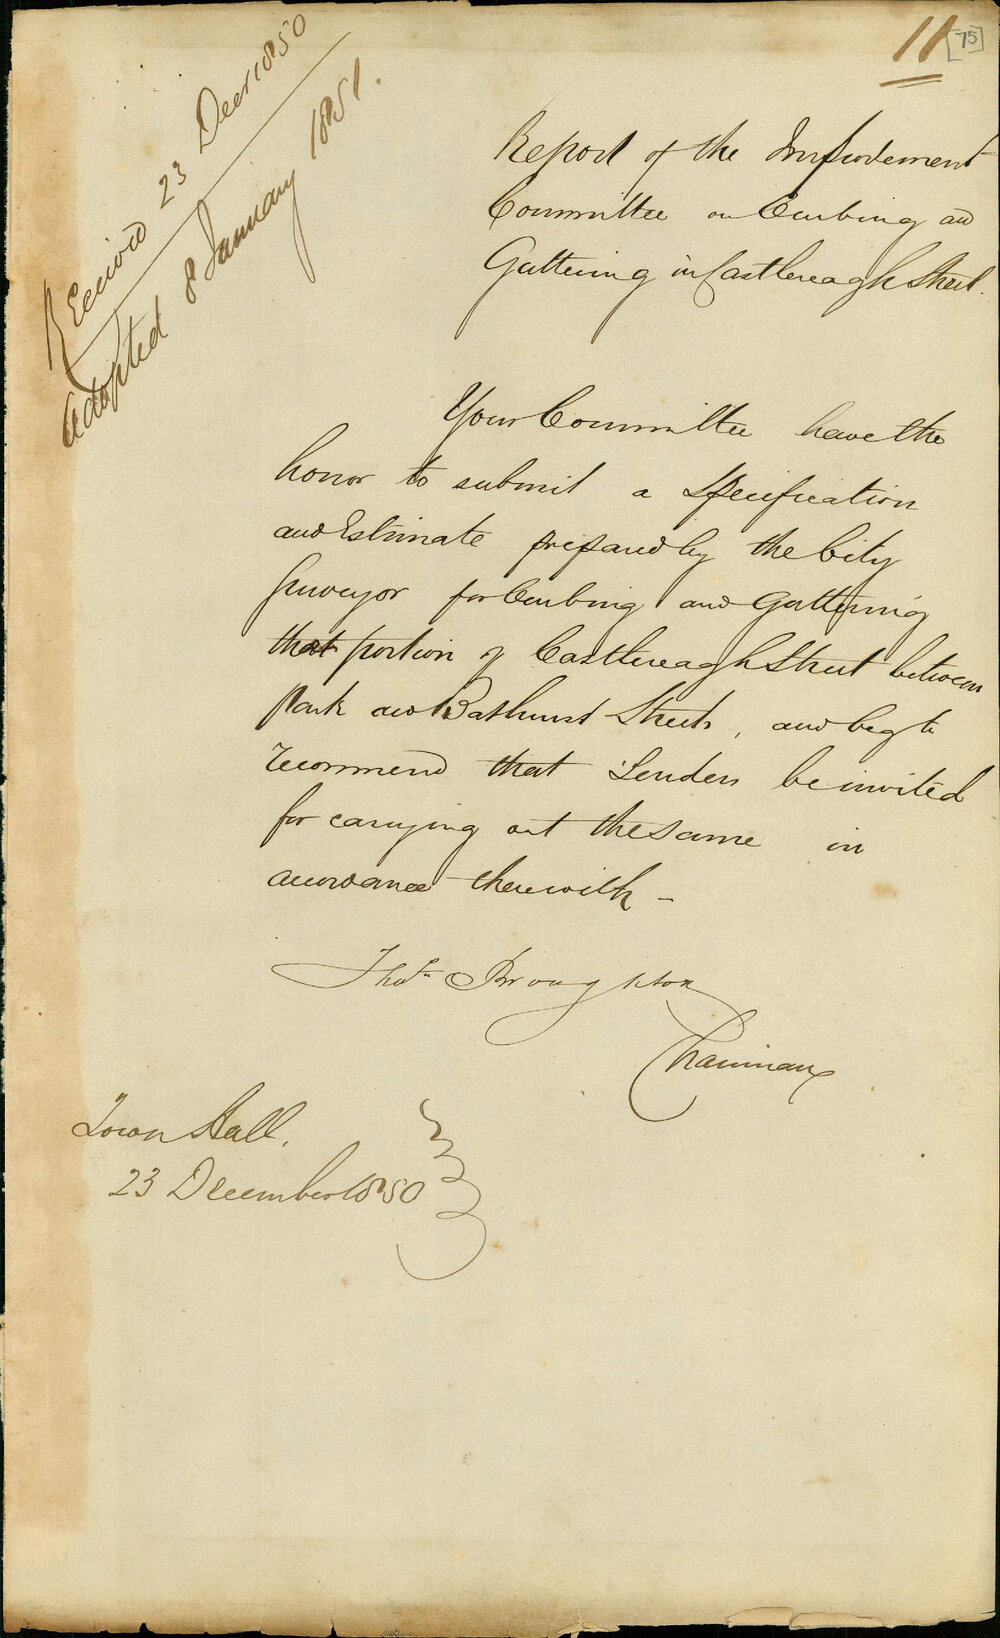 11
[75]
Received 23 Decer 1850
Adopted 8 January 1851.
Report of the Improvement
Committee on Curbing and
Guttering in Castlereagh Street.
Your Committee have the
honor to submit a Specification
and Estimate prepared by the City
Surveyor for Curbing and Guttering
that portion of Castlereagh Street between
Park and Bathurst Streets, and beg to
recommend that Tenders be invited
for carrying out the same in
accordance therewith –
Thos. Broughton
Chairman
Town Hall.
23 December 1850